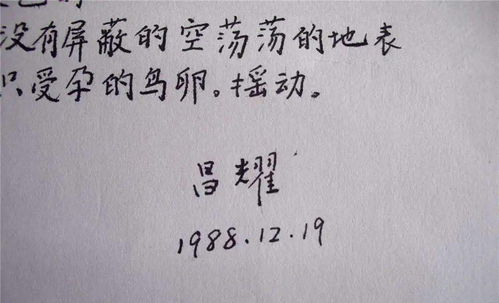 没有屏蔽的空荡荡的地表
只受孕的鸟卵。摇动。
昌耀
1988.12.19